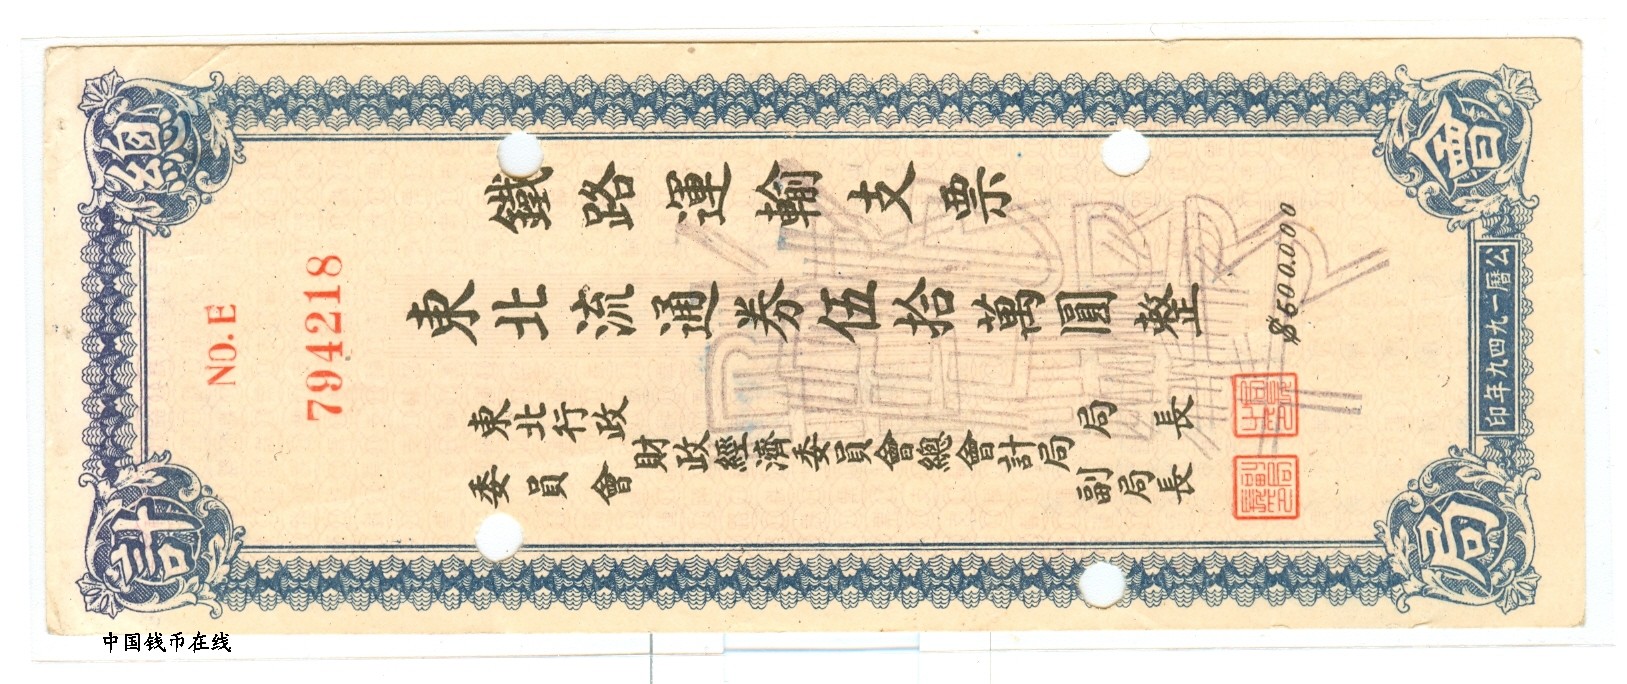 總會
計局
NO. E
794218
鐵路運輸支票
東北流通券伍拾萬圓整
$500.000
東北行政
委員會
財政經濟委員會總會計局
局長
副局長
公曆一九四九年印
中国钱币在线